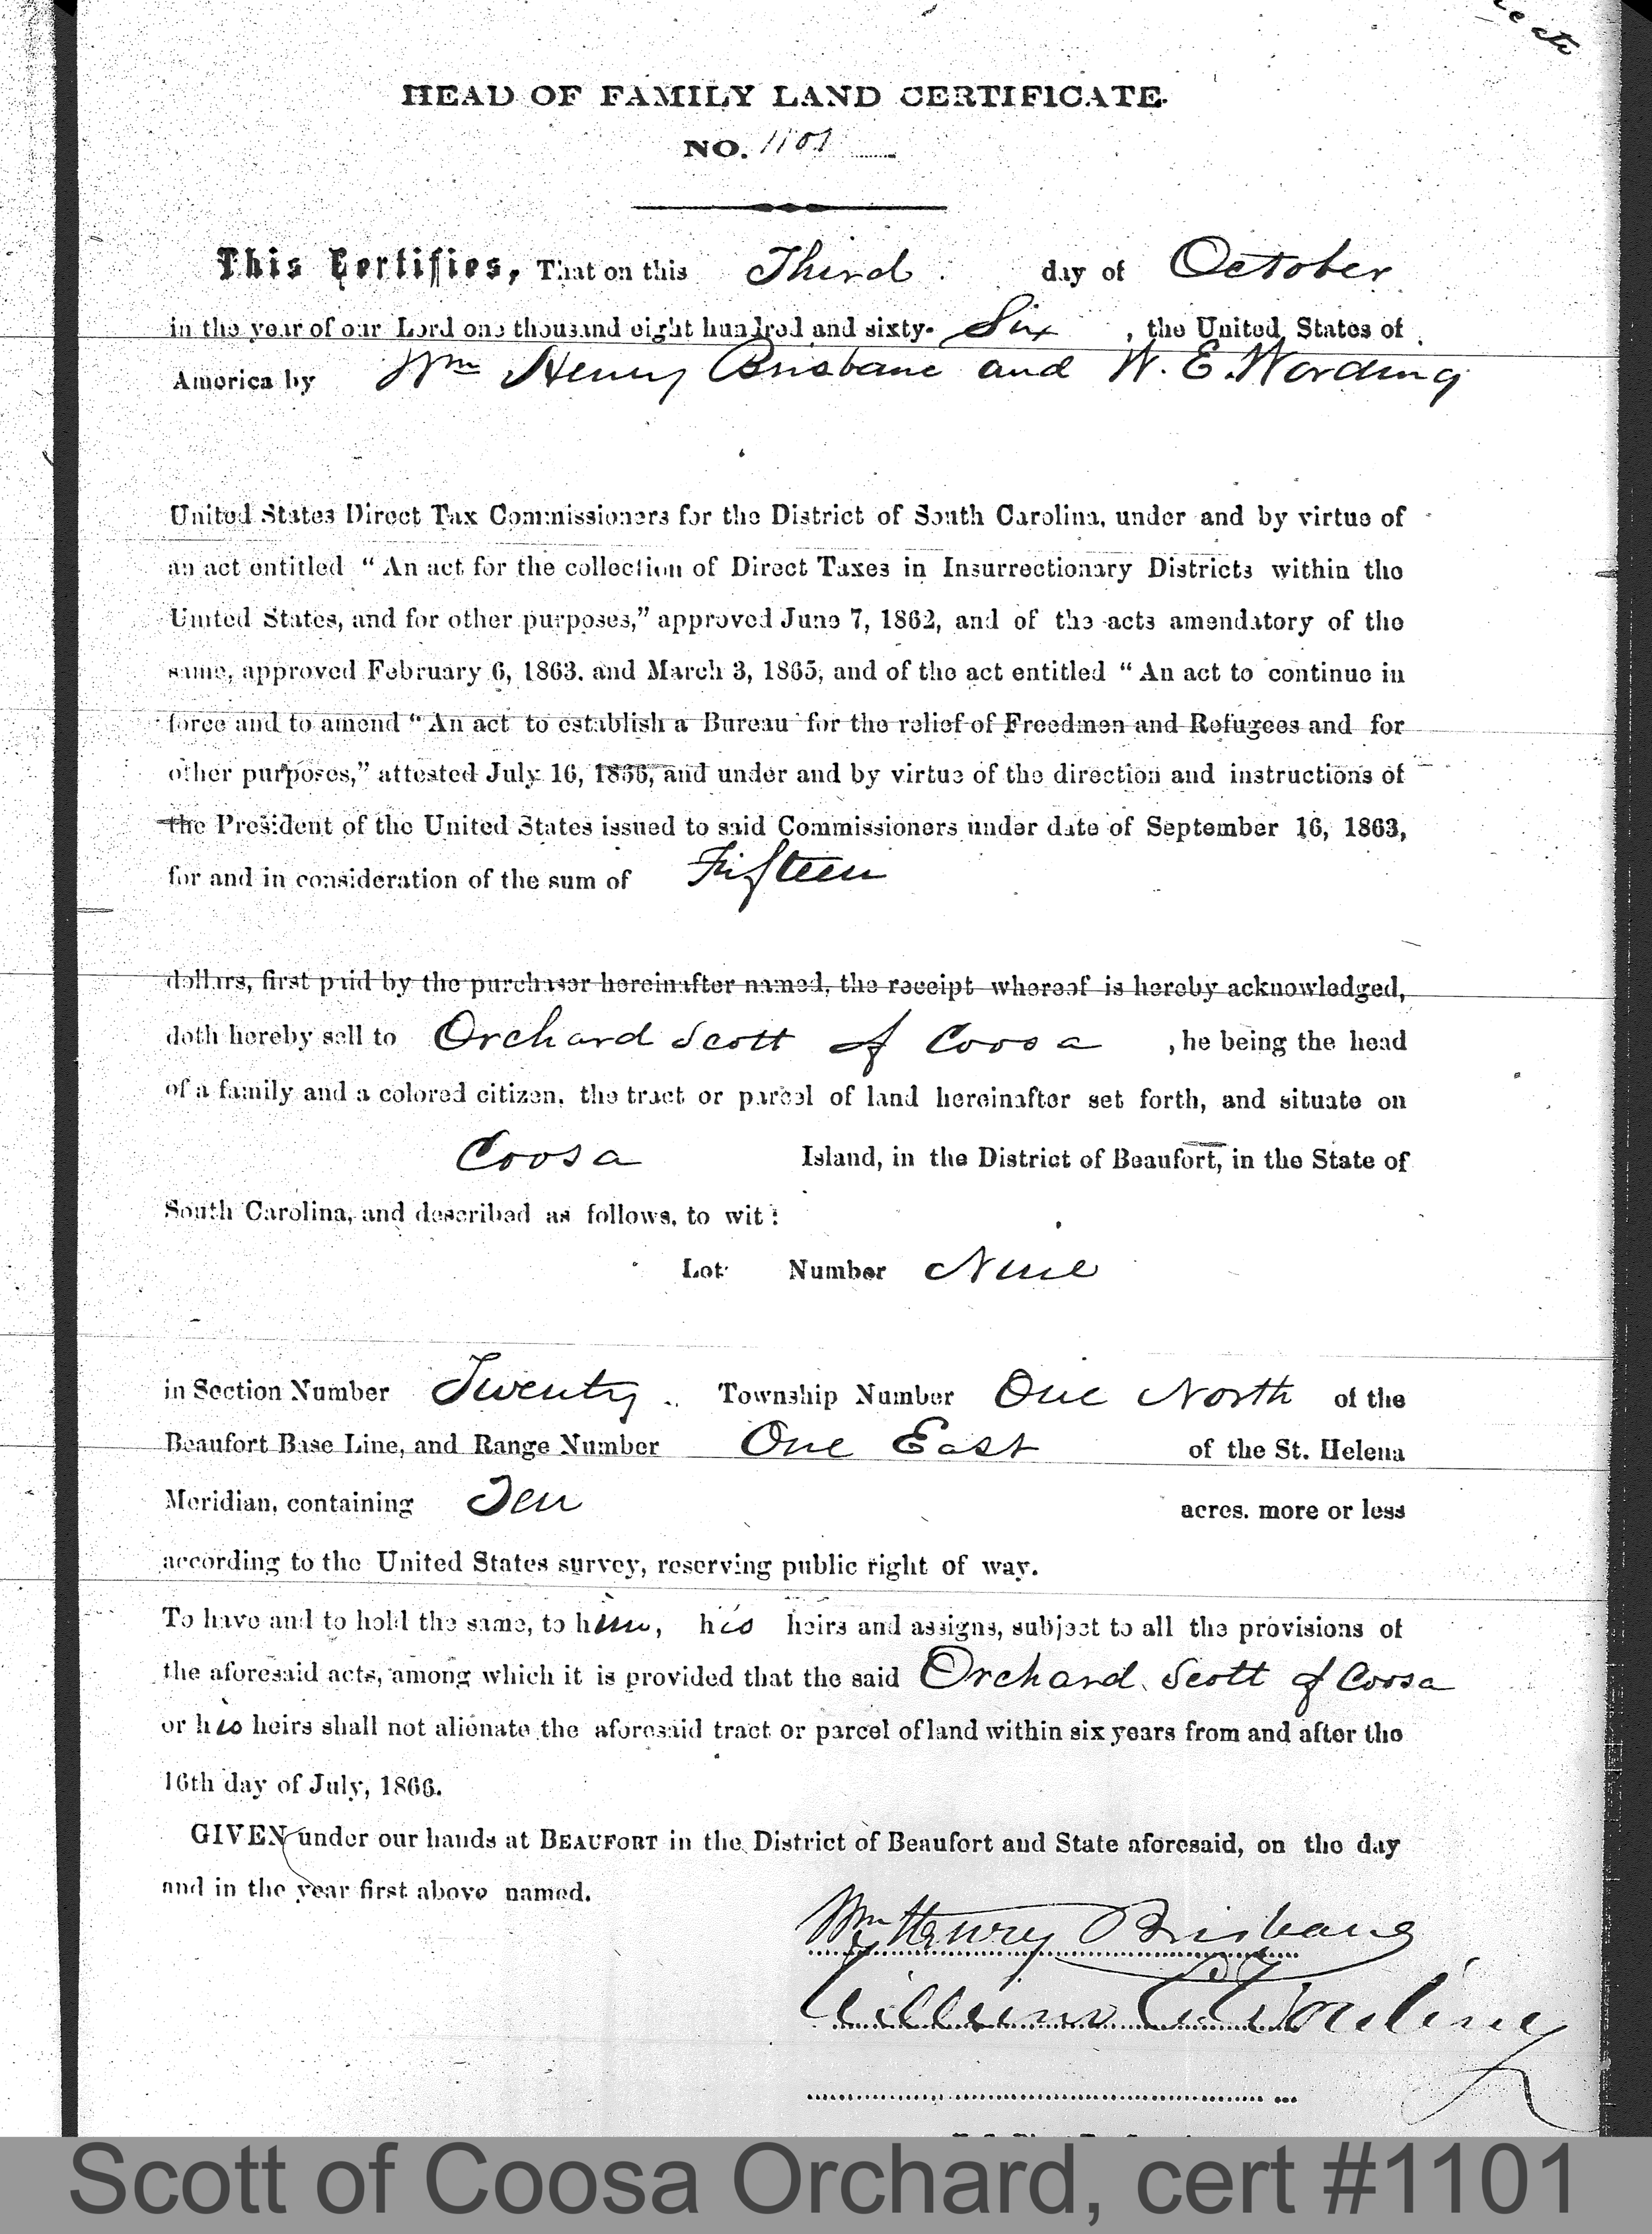 HEAD OF FAMILY LAND CERTIFICATE.
NO. 1101
This Certifies, That on this Third day of October
in the year of our Lord one thousand eight hundred and sixty- Six , the United States of
America by Wm Henry Brisbane and W. E. Wording
United States Direct Tax Commissioners for the District of South Carolina, under and by virtue of
an act entitled “An act for the collection of Direct Taxes in Insurrectionary Districts within the
United States, and for other purposes,” approved June 7, 1862, and of the acts amendatory of the
same, approved February 6, 1863. and March 3, 1865, and of the act entitled “An act to continue in
force and to amend “An act to establish a Bureau for the relief of Freedmen and Refugees and for
other purposes,” attested July 16, 1866, and under and by virtue of the direction and instructions of
the President of the United States issued to said Commissioners under date of September 16, 1863,
for and in consideration of the sum of Fifteen
dollars, first paid by the purchaser hereinafter named, the receipt whereof is hereby acknowledged,
doth hereby sell to Orchard Scott of Coosa , he being the head
of a family and a colored citizen, the tract or parcel of land hereinafter set forth, and situate on
Coosa Island, in the District of Beaufort, in the State of
South Carolina, and described as follows, to wit:
Lot Number Nine
in Section Number Twenty Township Number One North of the
Beaufort Base Line, and Range Number One East of the St. Helena
Meridian, containing Ten acres. more or less
according to the United States survey, reserving public right of way.
To have and to hold the same, to him, his heirs and assigns, subject to all the provisions of
the aforesaid acts, among which it is provided that the said Orchard Scott of Coosa
or his heirs shall not alienate the aforesaid tract or parcel of land within six years from and after the
16th day of July, 1866.
GIVEN under our hands at BEAUFORT in the District of Beaufort and State aforesaid, on the day
and in the year first above named.
Wm Henry Brisbane
William E. Wording
Scott of Coosa Orchard, cert #1101